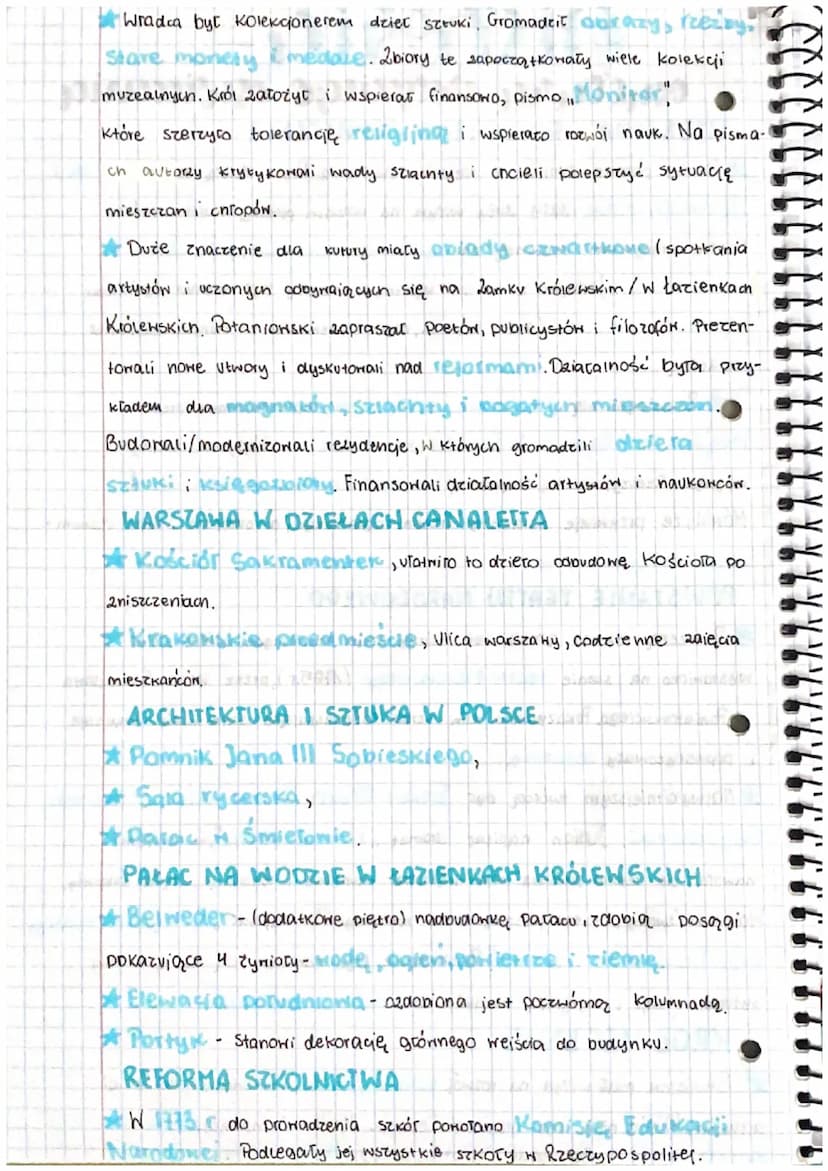 ★ Władca był kolekcjonerem dzieł sztuki. Gromadził obrazy, rzeźby,
stare monety i medale. Zbiory te zapoczątkowały wiele kolekcji
muzealnych. Król założył i wspierał finansowo, pismo „Monitor",
które szerzyło tolerancję religijną i wspierało rozwój nauk. Na pisma-
ch autorzy krytykowali wady szlachty i chcieli polepszyć sytuację
mieszczan i chłopów.
★ Duże znaczenie dla kutury miały obiady czwartkowe (spotkania
artystów i uczonych odbywających się na Zamku Królewskim / w Łazienkach
Królewskich. Potaniowski zapraszał poetów, publicystów i filozofów. Prezen-
towali nowe utwory i dyskutowali nad reformami. Działalność była przy-
kładem dla magnatów, szlachty i bogatych mieszczan.
Budowali/modernizowali rezydencje, w których gromadzili dzieła
sztuki i księgozbiory. Finansowali działalność artystów i naukowców.
WARSZAWA W DZIEŁACH CANALETTA
★ Kościół Sakramentek, ułatwiło to dzieło odbudowę kościoła po
zniszczeniach.
★ Krakowskie przedmieście, ulica warszawy, codzienne zajęcia
mieszkańców.
ARCHITEKTURA I SZTUKA W POLSCE
★ Pomnik Jana III Sobieskiego,
★ Sala rycerska,
★ Pałac w Śmiełowie.
PAŁAC NA WODZIE W ŁAZIENKACH KRÓLEWSKICH
★ Belweder - (dodatkowe piętro) nadbudówkę pałacu, zdobią posągi
pokazujące 4 żywioły - wodę, ogień, powietrze i ziemię.
★ Elewacja południowa - ozdobiona jest poczwórną kolumnadą.
★ Portyk - stanowi dekorację głównego wejścia do budynku.
REFORMA SZKOLNICTWA
★ W 1773 r do prowadzenia szkół powołano Komisję Edukacji
Narodowej. Podlegały jej wszystkie szkoły w Rzeczypospolitej.